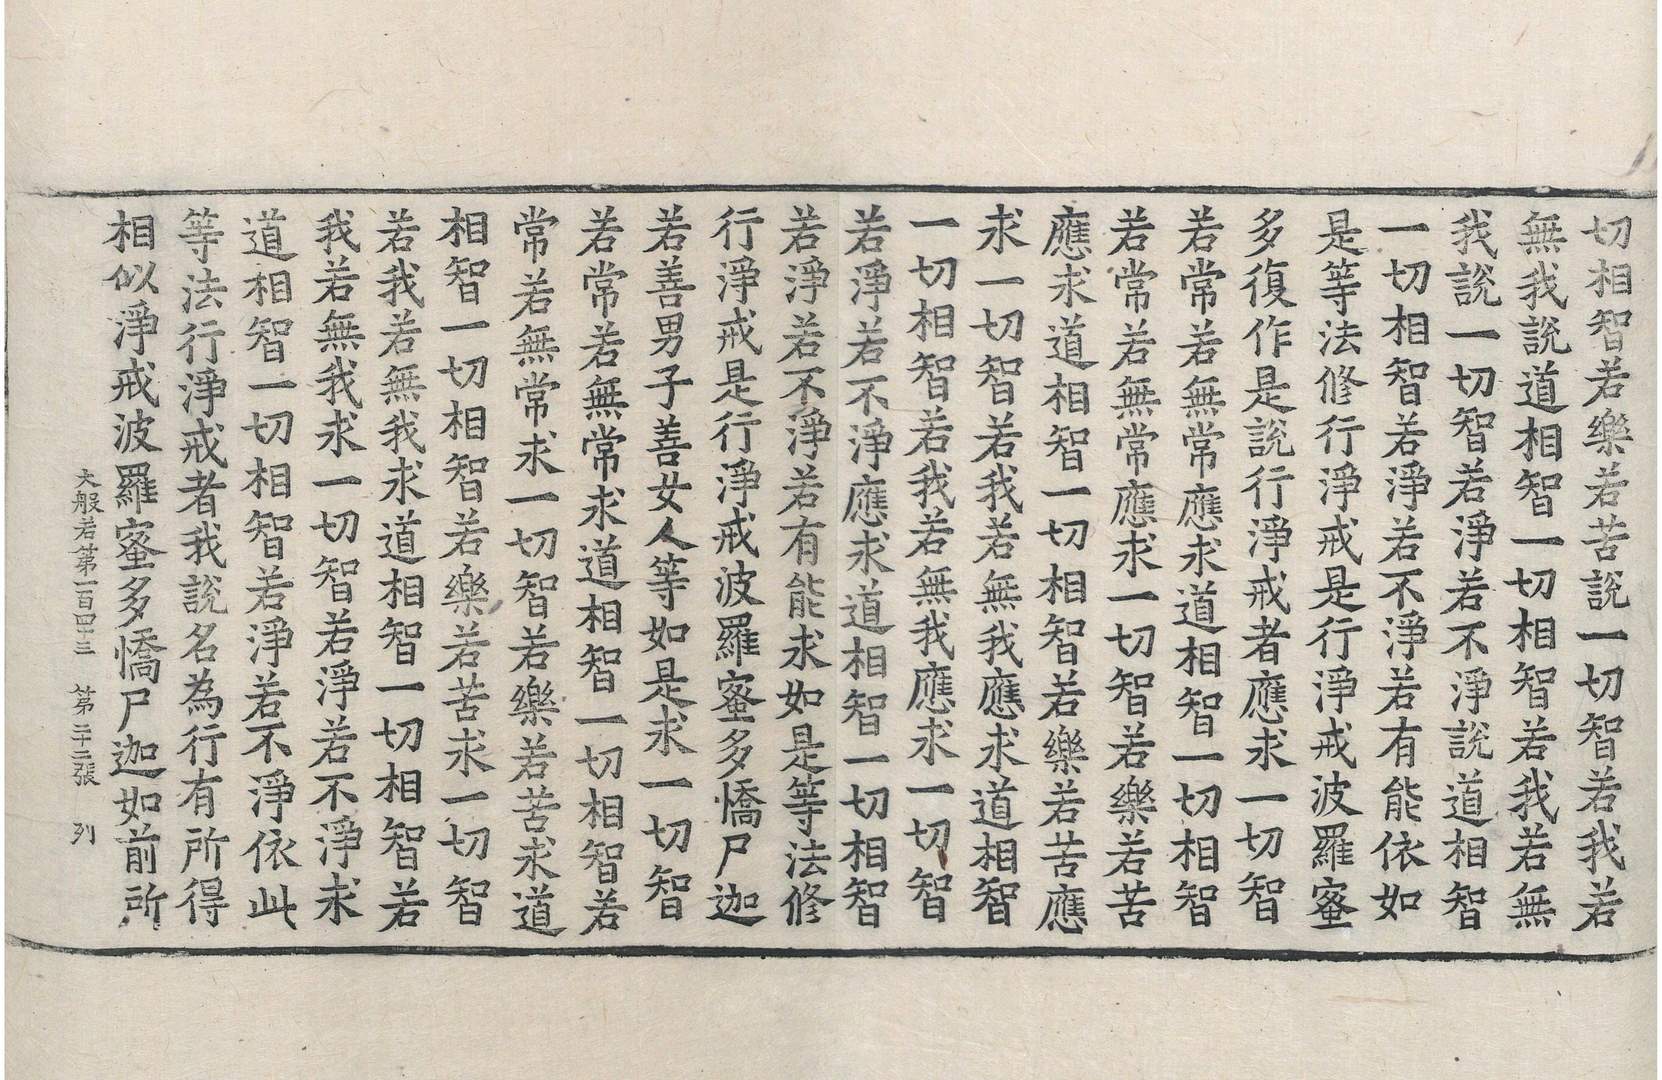 切相智若樂若苦說一切智若我若
無我說道相智一切相智若我若無
我說一切智若淨若不淨說道相智
一切相智若淨若不淨若有能依如
是等法修行淨戒是行淨戒波羅蜜
多復作是說行淨戒者應求一切智
若常若無常應求道相智一切相智
若常若無常應求一切智若樂若苦
應求道相智一切相智若樂若苦應
求一切智若我若無我應求道相智
一切相智若我若無我應求一切智
若淨若不淨應求道相智一切相智
若淨若不淨若有能求如是等法修
行淨戒是行淨戒波羅蜜多憍尸迦
若善男子善女人等如是求一切智
若常若無常求道相智一切相智若
常若無常求一切智若樂若苦求道
相智一切相智若樂若苦求一切智
若我若無我求道相智一切相智若
我若無我求一切智若淨若不淨求
道相智一切相智若淨若不淨依此
等法行淨戒者我說名為行有所得
相似淨戒波羅蜜多憍尸迦如前所
大般若第一百四十三 第二十二張 列